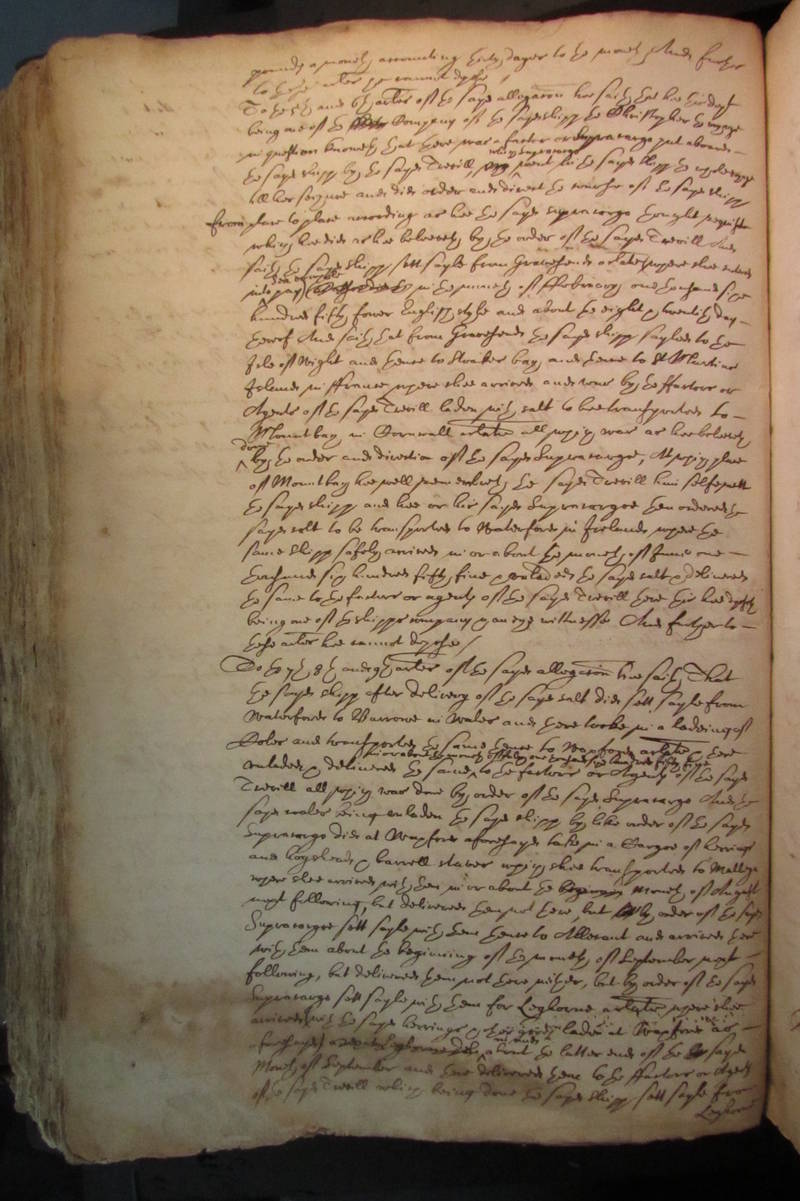 pounds a moneth accounting thirty dayes to the moneth And further
to these articles hee cannot depose /
To the 5th and 6th articles of the sayd allegacon hee saith that hee this deponent
being one of the Company of the sayd shipp the Christopher the voyage
in question knoweth that there was a factor or Supracargo put aboard
the sayd shipp by the sayd Terrill, which Supracargo went in the sayd shipp the whole voyage
till her seizure and did order and direct the course of the sayd shipp
from place to place according as hee the sayd supracargo thought requisite
which hee did as hee beleeveth by the order of the sayd Terrill And
saith the sayd shipp sett sayle from Gravesend arlate where shee entred
into pay in the moneth of ffebruary one thousand six
hundred fifty fower English style and about the eight & twentith day
thereof And saith that from Gravesend the sayd shipp sayled to the
Isle of Wight and thence to Stoakes bay and thence to St Martins
Islands in ffrance where shee arrived and was by the ffactors or
Agents of the sayd Terrill laden with salt to bee transported to
Mountbay in Cornwall arlate all which was as hee beleeveth
done by the order and direction of the sayd Supracargo, At which place
of Mountbay hee well remembreth the sayd Terrill him selfe mett
the sayd shipp and hee or his sayd Supracargoe then ordered the
sayd salt to be transported to Waterford in Ireland where the
same shipp safely arrived in or about the moneth of June one
thousand six hundred fifty five & unladed the sayd salt & delivered
the same to the factors or agents of the sayd Terrill there this hee deposeth
being one of the shipps company & an eye witnesse And further to
these articles hee cannot depose /
To the 7th 8th and 9th articles of the sayd allegacon hee saith That
the sayd shipp after delivery of the sayd salt did sett sayle from
Waterford to Barrowe in Wales and there tooke in a ladeing of
Coles and transported the same thence to Wexford arlate & there
in or about the moneth of July one thousand six hundred fifty five
unladed & delivered the same to the factors or Agents of the sayd
Terrill all which was done by order of the sayd Supracargo And the
sayd coles being unladen the sayd shipp by like order of the sayd
Supracargo did at Wexford aforesayd take in a Cargoe of herrings
and hogsheads & barrell staves which shee transported to Mallaga
where shee arrived with them in or about the moneth of August
next following, but delivered them not there, but by order of the sayd
Supracargoe sett sayle with them thence to Allecant and arrived there
with them about the beginning of the moneth of September next
following, but delivered them not there neither, but by order of the sayd
Supracargo sett sayle with them for Leghorne arlate where shee
arrived with the sayd herrings & other goods laden at Wexford as
aforesayd about the latter end of the sayd
Moneth of September and there delivered them to the ffactors or Agents
of the sayd Terrill which being done the sayd shipp sett sayle from
Leghorne